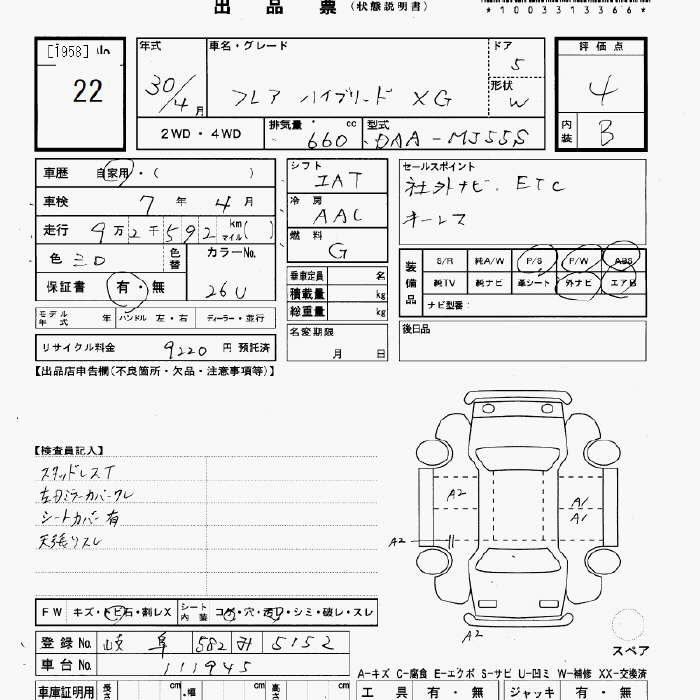 出 品 票 (状態説明書)
*1003313366*
[1958]
22
年式
30/4 月
車名・グレード
フレア ハイブリード XG
ドア
5
形状
W
評価点
4
内装 B
2WD・4WD
排気量・ cc
660
型式
DAA-MJ55S
車歴 自家用・( )
車検 7 年 4 月
走行 9万2千592 km マイル( )
色 ミロ
色替
カラーNo.
26U
保証書 有・無
モデル年式 年 ハンドル 左・右 ディーラー・並行
リサイクル料金 9220 円 預託済
シフト
IAT
冷房
AAC
燃料
G
乗車定員 名
積載量 kg
総重量 kg
名変期限
月 日
セールスポイント
社外ナビ. ETC
キーレス
装備品
S/R 純A/W P/S P/W ABS
純TV 純ナビ 革シート 外ナビ エアB
ナビ型番:
後日品
【出品店申告欄(不良箇所・欠品・注意事項等)】
【検査員記入】
スタッドレスT
左Dミラーカバーワレ
シートカバー有
天張リスレ
A2
A1
A1
A2
A2
スペア
FW キズ・トビ石・割レX
シート内装 コゲ・穴・汚レ・シミ・破レ・スレ
登録 No. 岐阜 582 み 5152
車台 No. 111945
A-キズ C-腐食 E-エクボ S-サビ U-凹ミ W-補修 XX-交換済
車庫証明用 長さ cm ・幅 cm 高さ cm
工具 有・無 ジャッキ 有・無